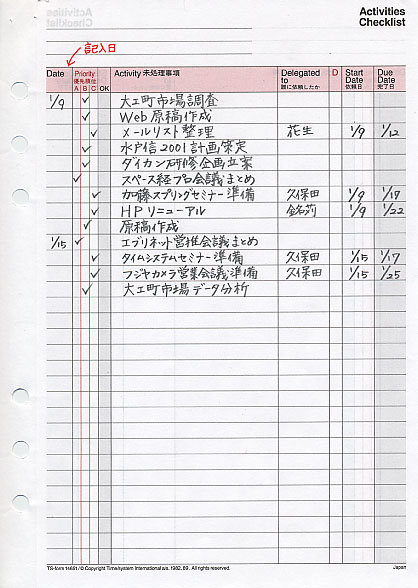 Activities
Checklist
記入日
Date Priority 優先順位 A B C OK Activity 未処理事項 Delegated to 誰に依頼したか D Start Date 依頼日 Due Date 完了日
1/9 ✓ 大工町市場調査
✓ Web原稿作成
✓ メールリスト整理 花生 1/9 1/12
✓ 水戸信2001計画策定
✓ ダイカン研修企画立案
✓ スペース経プロ会議まとめ
✓ 加藤スプリングセミナー準備 久保田 1/9 1/17
✓ HPリニューアル 1/9 1/22
✓ 原稿作成
1/15 ✓ エブリネット営推会議まとめ
✓ タイムシステムセミナー準備 久保田 1/15 1/17
✓ フジヤカメラ営業会議準備 久保田 1/15 1/25
✓ 大工町市場データ分析
TS-form 14651/© Copyright Time/system International a/s. 1982, 89. All rights reserved. Japan